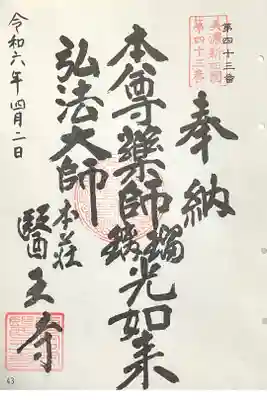 第四十三番
美濃新四国
第四十三番
奉納
本尊藥師瑠璃光如来
弘法大師
本荘
醫王寺
令和六年四月二日
43